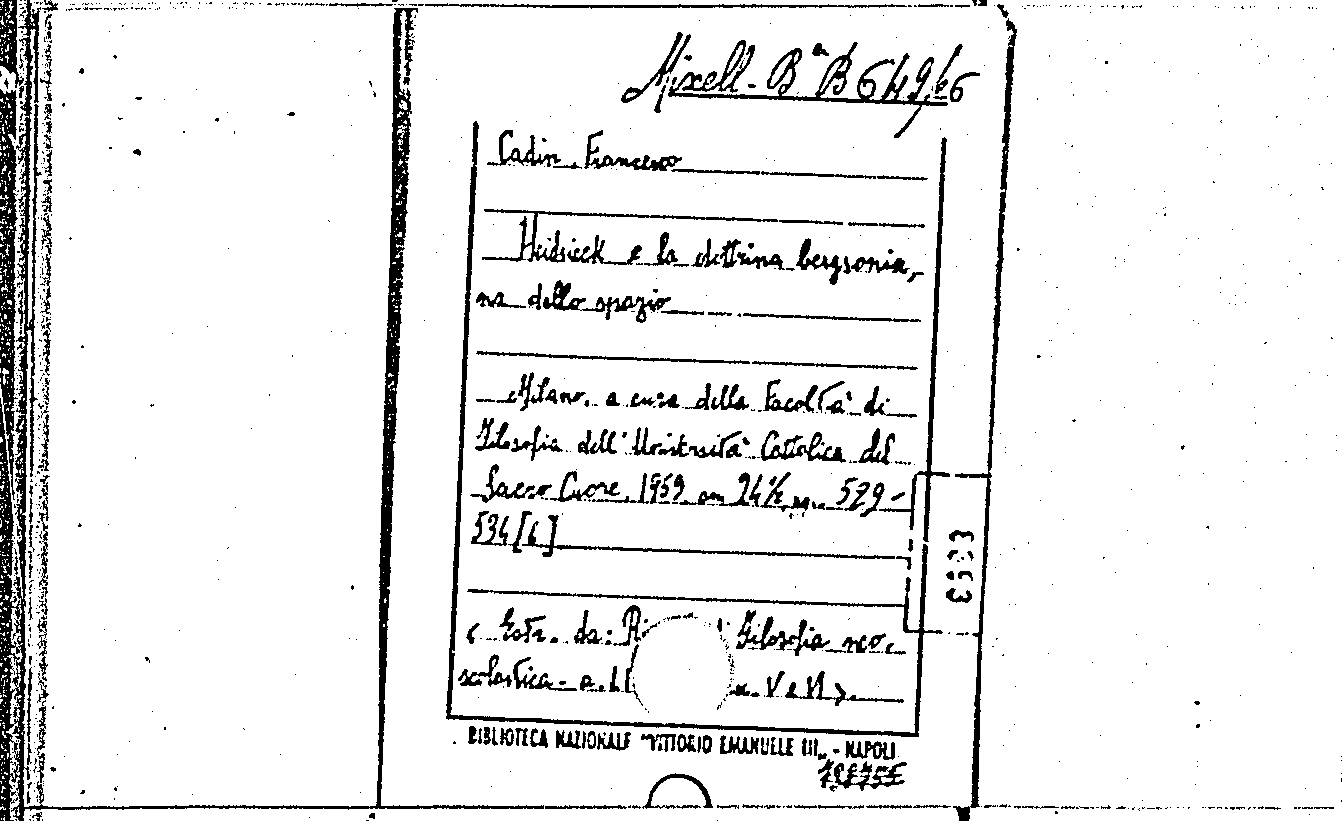 Mixell - Bª B 649/26
Cadin, Francesco
Heidsieck e la dottrina bergsonia-
na dello spazio
Milano, a cura della Facoltà di
Filosofia dell'Università Cattolica del
Sacro Cuore, 1959 cm 24½, pp. 529-
534 [6]
( Estr. da: Ri Filosofia neo-
scolastica - a. V e VI ).
BIBLIOTECA NAZIONALE "VITTORIO EMANUELE III„ - NAPOLI